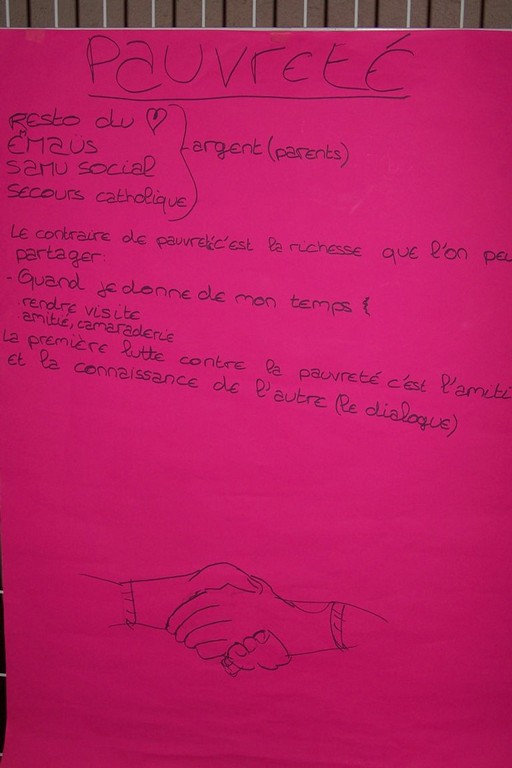 PAUVRETÉ
RESTO du ♡
ËMAÜS
SAMU SOCIAL
SECOURS catholique
argent (parents)
Le contraire de pauvreté c'est la richesse que l'on peu
partager:
- Quand je donne de mon temps {
rendre visite
amitié, camaraderie
La première lutte contre la pauvreté c'est l'amiti
et la connaissance de l'autre (le dialogue)